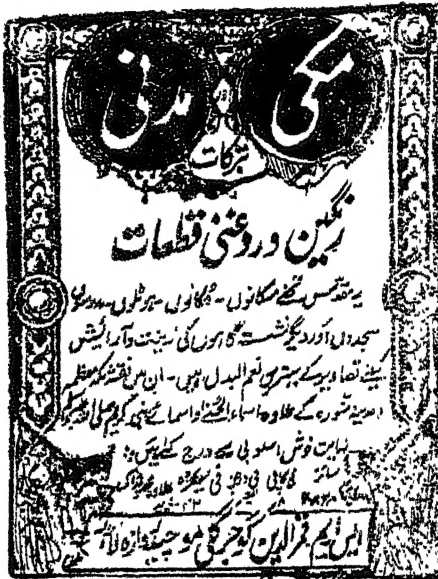 مکی مدنی
تبرکات
رنگین و روغنی قطعات
یہ مقدس تحفے مکانوں۔ دُکانوں۔ ہوٹلوں۔
مسجدوں اور دیگر نشست گاہوں کی زینت و آرائش
کیلئے تصاویر کے بہترین نعم البدل ہیں۔ ان میں نقشہ مکہ معظمہ
مدینہ منورہ کے علاوہ اسماء الحسنٰے و اسمائے نبی کریم صلی اللہ علیہ وسلم
نہایت خوش اسلوبی سے درج کئے گئے ہیں
سائز فی کاپی فی سیکڑہ علاوہ
ایس ایم قمرالدین کوچہ